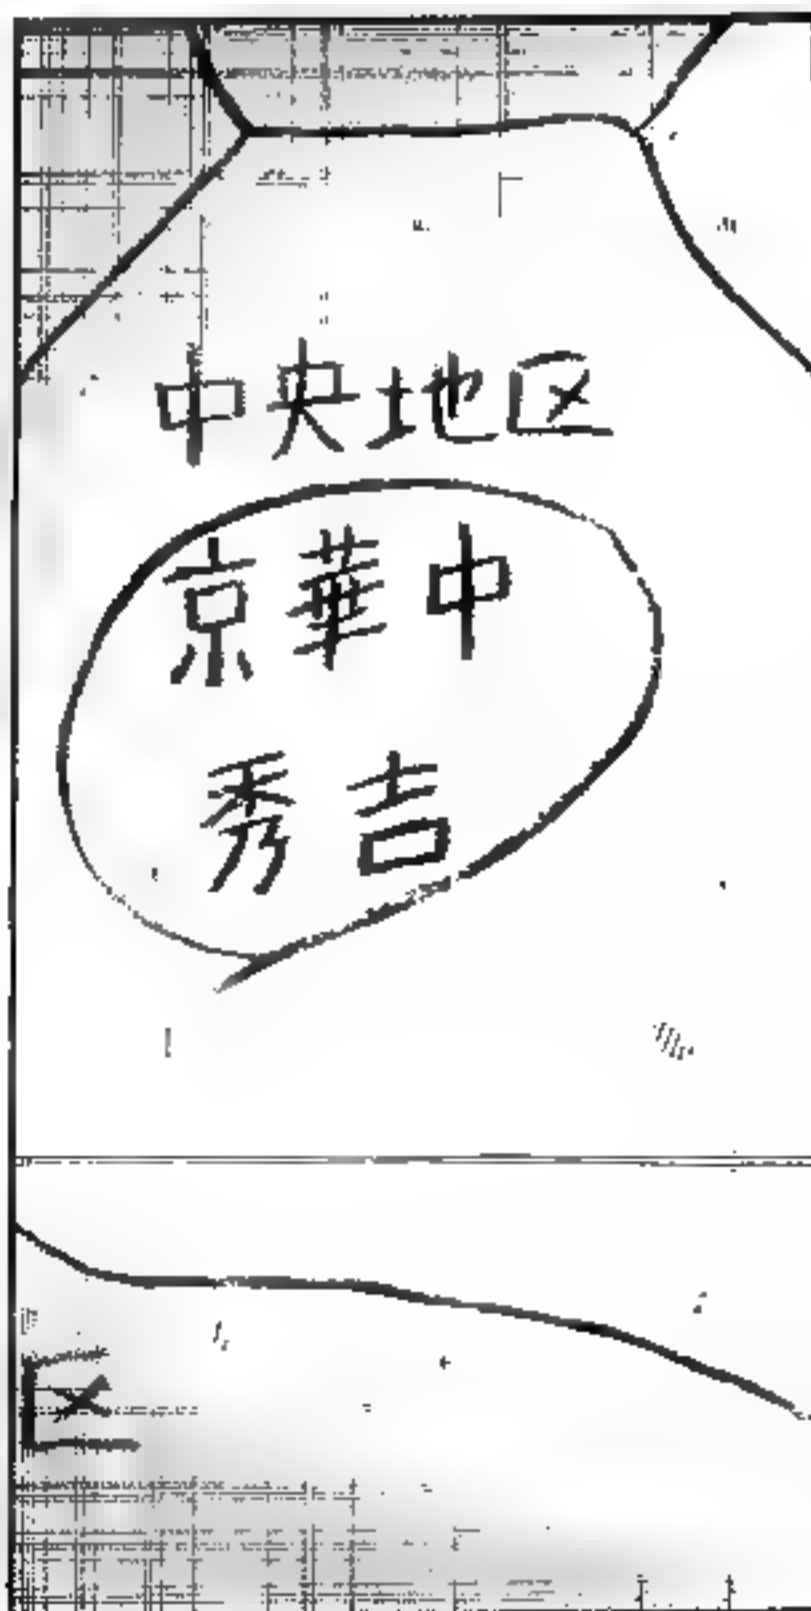 中央地区
京華中
秀吉
区